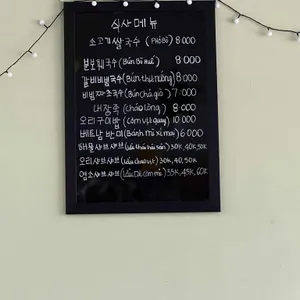 식사 메뉴
소고기쌀국수 (PHỞ BÒ) 8 000
분보훼국수 (Bún Bò Huế) 8 000
갈비비빔국수 (Bún thịt nướng) 8000
비빔자초국수 (Bún chả giò) 7 000
내장죽 (cháo lòng) 8 000
오리구이밥 (Cơm vịt quay) 10 000
베트남 반미 (Bánh mì xíu mại) 6 000
해물샤브샤브 (Lẩu thái hải sản) 30K, 40K, 50K
오리샤브샤브 (Lẩu cháo vịt) 30K, 40, 50K
염소샤브샤브 35K, 45K, 60K